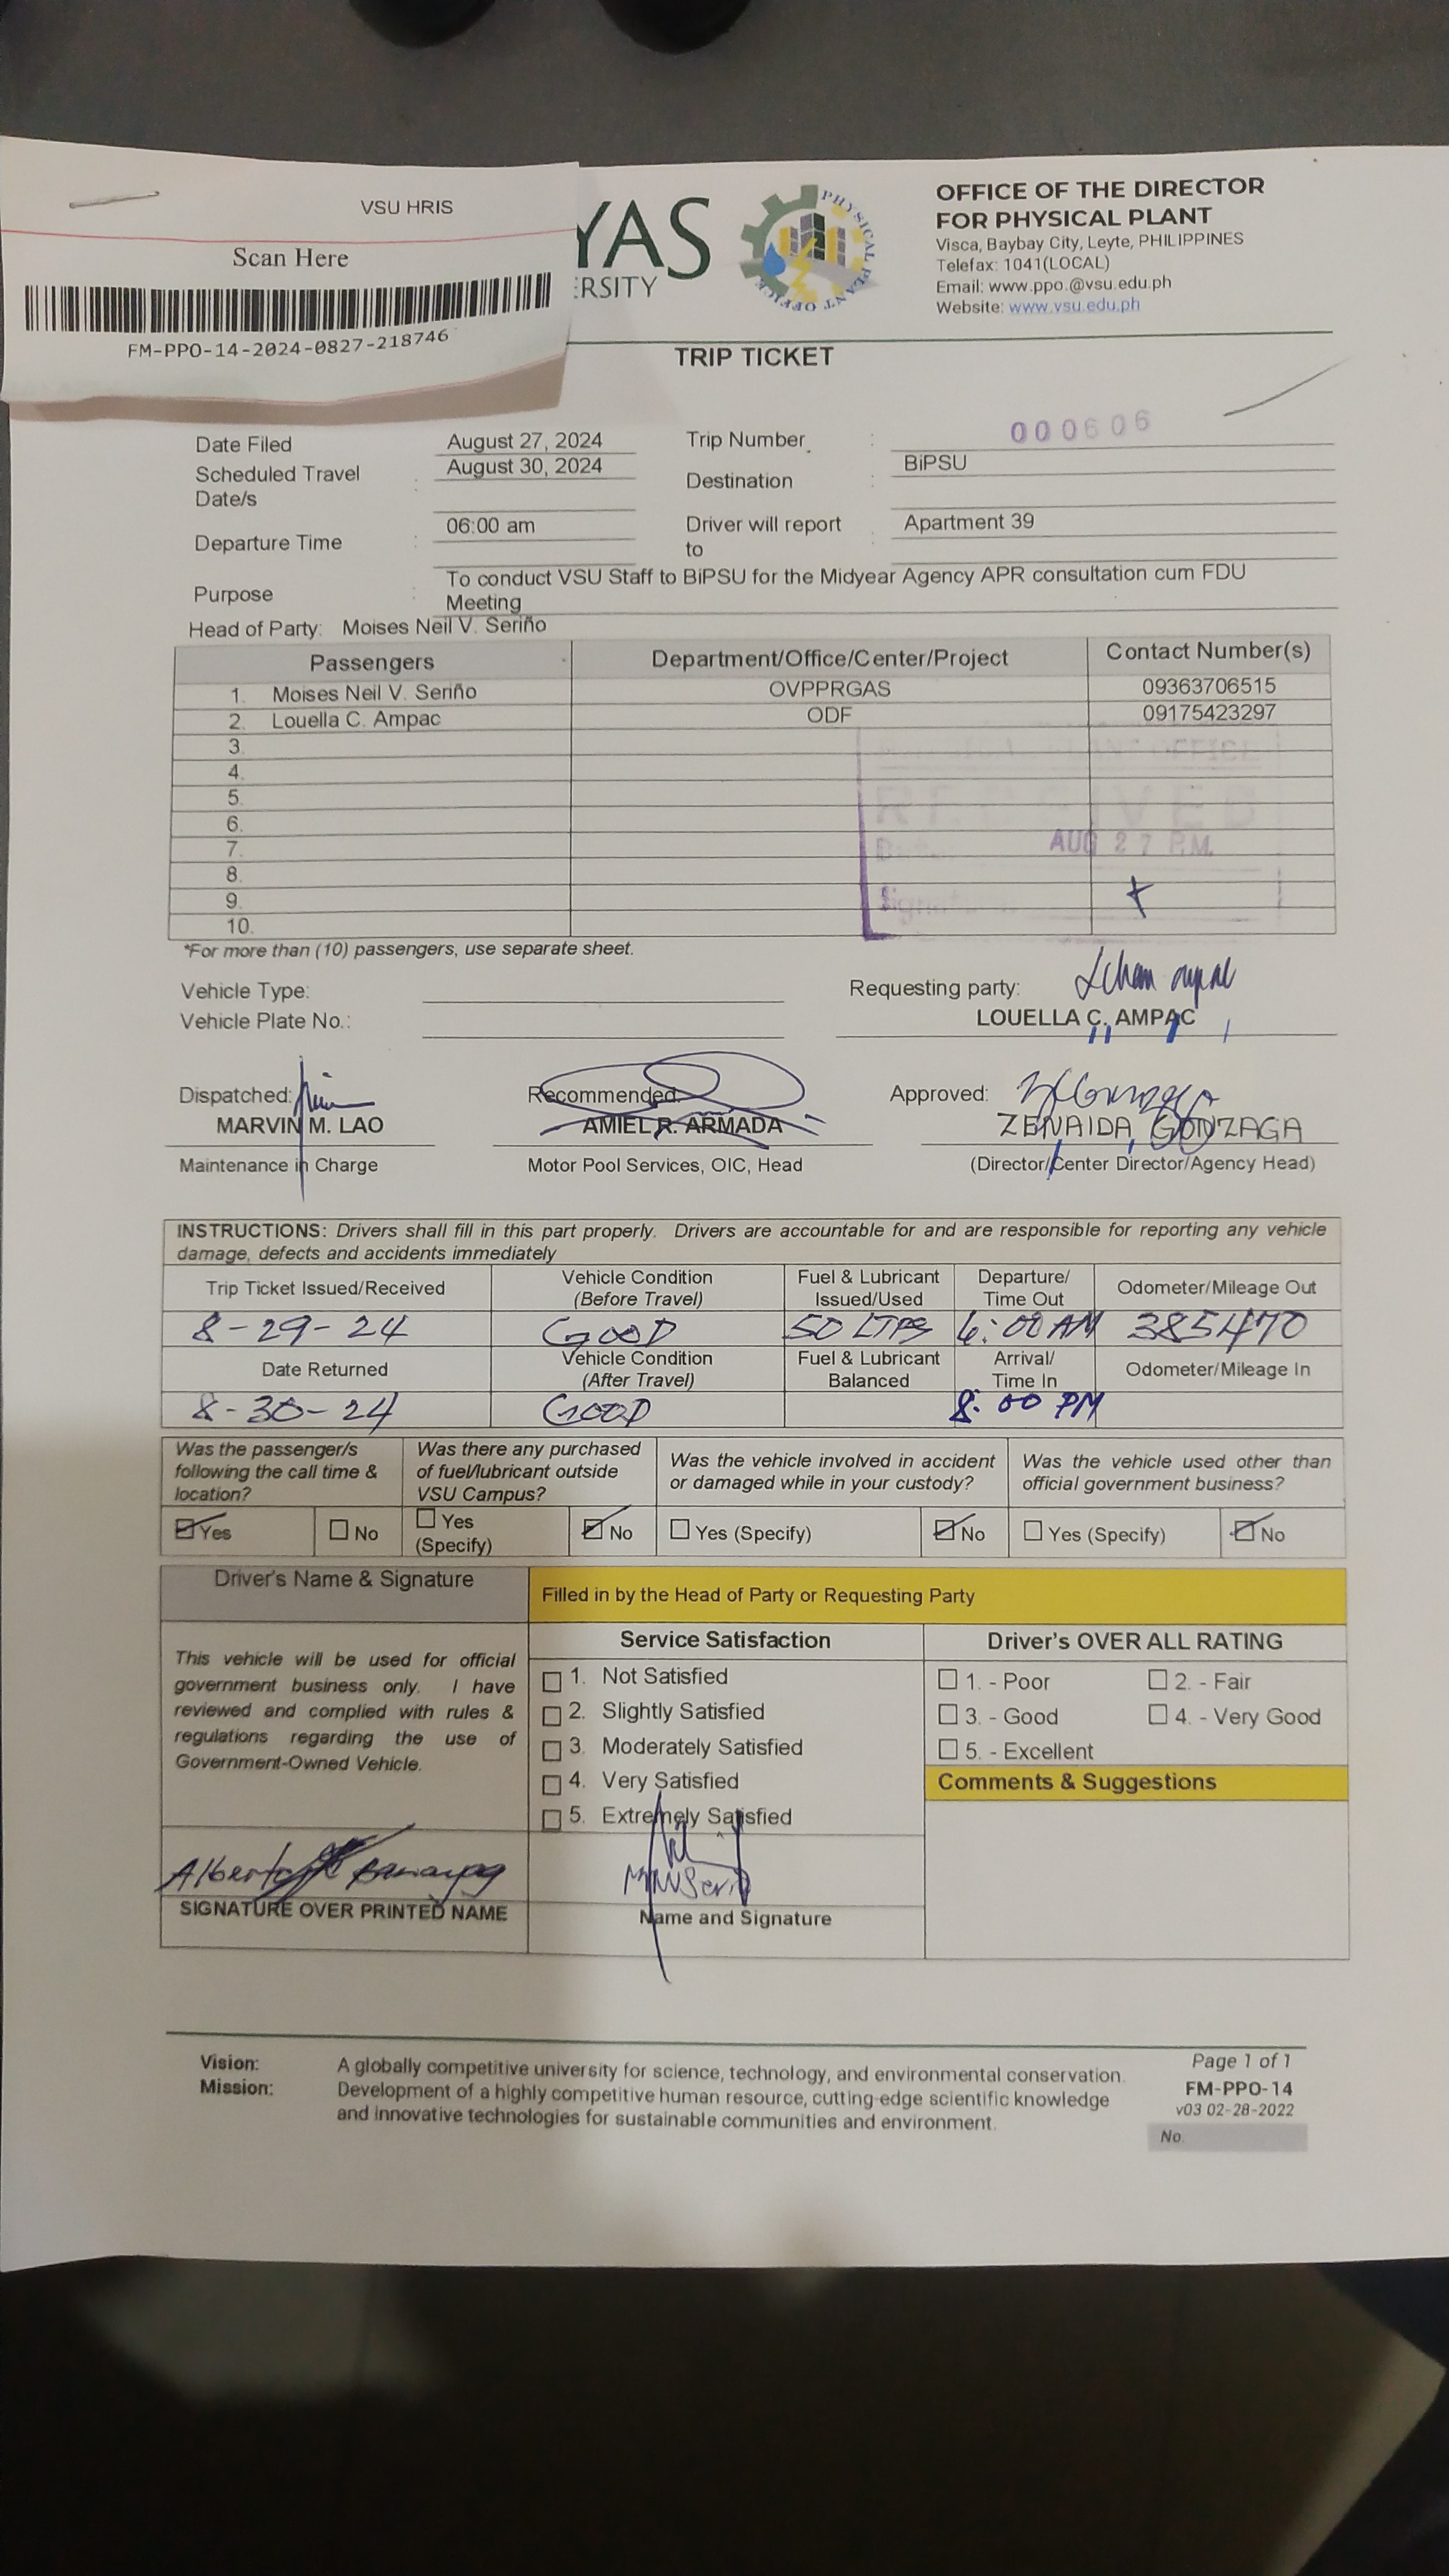 VSU HRIS
Scan Here
FM-PPO-14-2024-0827-218746
YAS
ERSITY
PHYSICAL PLANT OFFICE
OFFICE OF THE DIRECTOR
FOR PHYSICAL PLANT
Visca, Baybay City, Leyte, PHILIPPINES
Telefax: 1041(LOCAL)
Email: www.ppo.@vsu.edu.ph
Website: www.vsu.edu.ph
TRIP TICKET
Date Filed August 27, 2024 Trip Number : 000606
Scheduled Travel Date/s : August 30, 2024 Destination : BiPSU
Departure Time : 06:00 am Driver will report to : Apartment 39
Purpose : To conduct VSU Staff to BiPSU for the Midyear Agency APR consultation cum FDU
Meeting
Head of Party: Moises Neil V. Seriño
Passengers Department/Office/Center/Project Contact Number(s)
1. Moises Neil V. Seriño OVPPRGAS 09363706515
2. Louella C. Ampac ODF 09175423297
3.
4.
5.
6.
7.
8.
9.
10.
OFFICE
RECEIVED
AUG 27 P.M.
*For more than (10) passengers, use separate sheet.
Vehicle Type: Requesting party:
Vehicle Plate No.: LOUELLA C. AMPAC
Dispatched: Recommended: Approved:
MARVIN M. LAO AMIEL R. ARMADA ZENAIDA GONZAGA
Maintenance in Charge Motor Pool Services, OIC, Head (Director/Center Director/Agency Head)
INSTRUCTIONS: Drivers shall fill in this part properly. Drivers are accountable for and are responsible for reporting any vehicle
damage, defects and accidents immediately
Trip Ticket Issued/Received Vehicle Condition (Before Travel) Fuel & Lubricant Issued/Used Departure/ Time Out Odometer/Mileage Out
8-29-24 GOOD 50 LTRS 6:00 AM 385470
Date Returned Vehicle Condition (After Travel) Fuel & Lubricant Balanced Arrival/ Time In Odometer/Mileage In
8-30-24 GOOD 8:00 PM
Was the passenger/s following the call time & location? Was there any purchased of fuel/lubricant outside VSU Campus? Was the vehicle involved in accident or damaged while in your custody? Was the vehicle used other than official government business?
Yes No Yes (Specify) No Yes (Specify) No Yes (Specify) No
Driver's Name & Signature Filled in by the Head of Party or Requesting Party
Service Satisfaction Driver's OVER ALL RATING
This vehicle will be used for official
government business only. I have
reviewed and complied with rules &
regulations regarding the use of
Government-Owned Vehicle.
1. Not Satisfied
2. Slightly Satisfied
3. Moderately Satisfied
4. Very Satisfied
5. Extremely Satisfied
1. - Poor 2. - Fair
3. - Good 4. - Very Good
5. - Excellent
Comments & Suggestions
Alberto
SIGNATURE OVER PRINTED NAME Name and Signature
Vision: A globally competitive university for science, technology, and environmental conservation.
Mission: Development of a highly competitive human resource, cutting-edge scientific knowledge
and innovative technologies for sustainable communities and environment.
Page 1 of 1
FM-PPO-14
v03 02-28-2022
No.